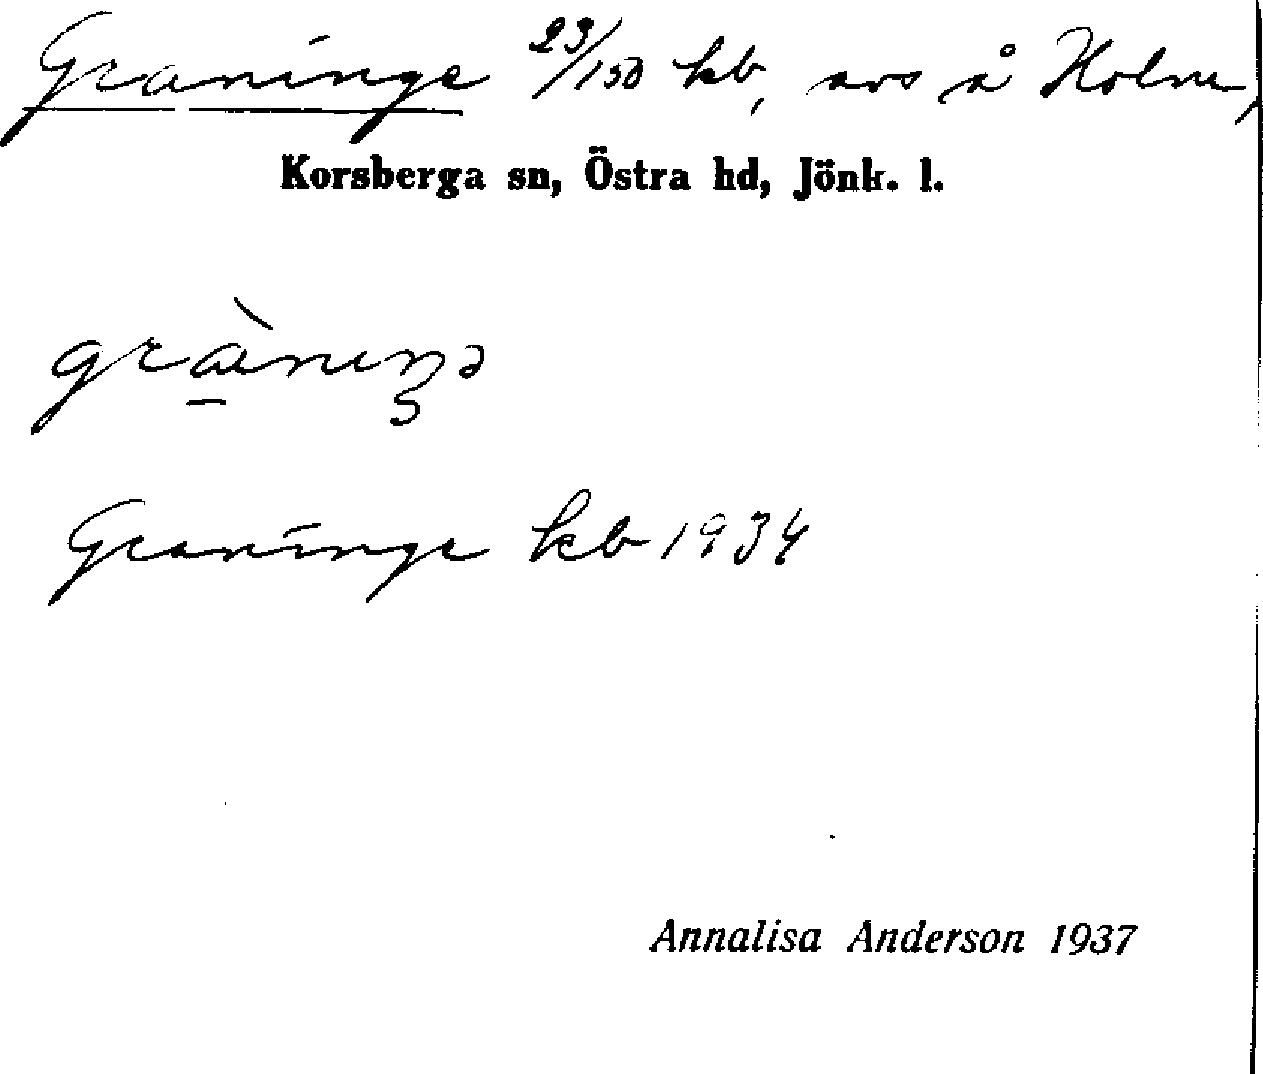 Graninge 23/150 kb, avs å Holm,
Korsberga sn, Östra hd, Jönk. l.
Graninge kb 1934
Annalisa Anderson 1937